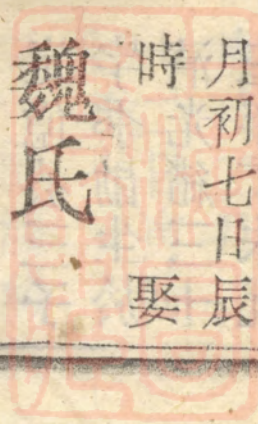 月初七日辰
時 娶
魏氏